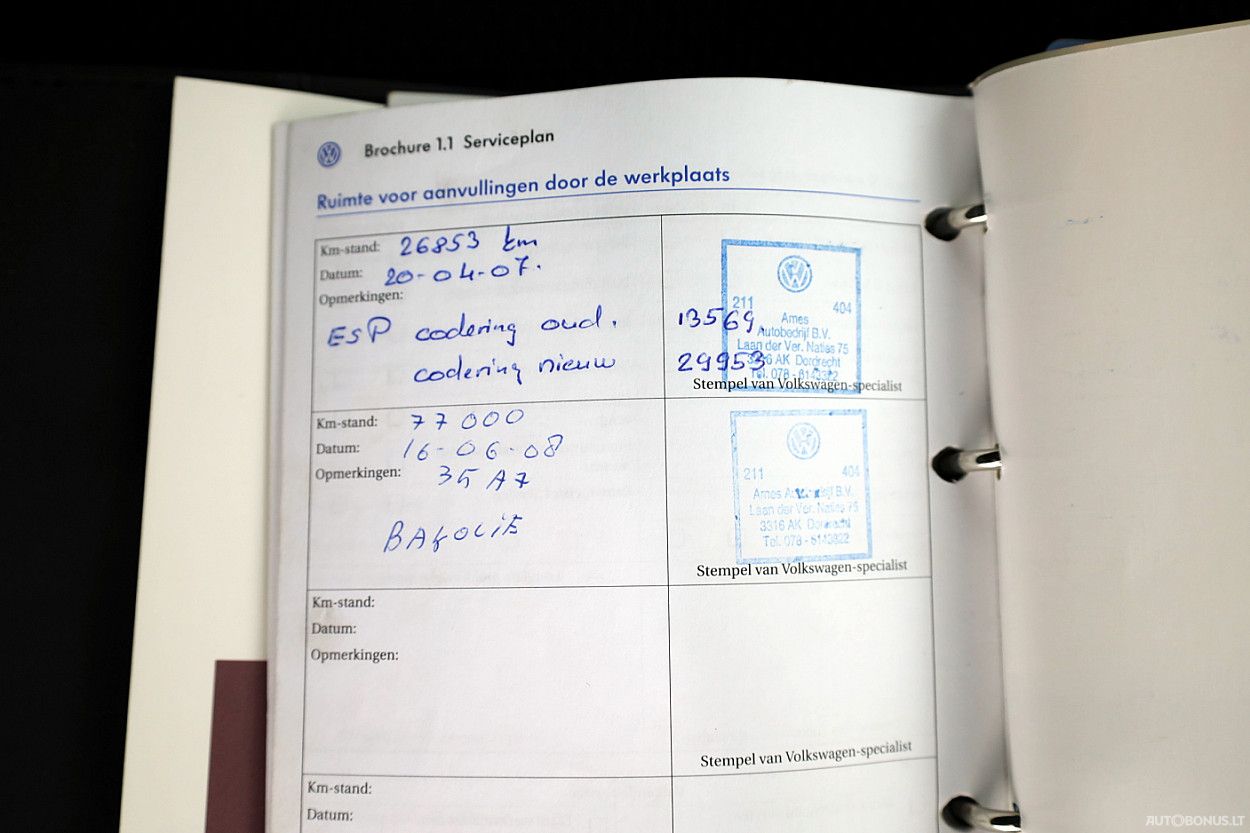 Brochure 1.1 Serviceplan
Ruimte voor aanvullingen door de werkplaats
Km-stand: 26853 km
Datum: 20-04-07.
Opmerkingen:
ESP codering oud. 13569
codering nieuw 29953
211 404
Ames
Autobedrijf B.V.
Laan der Ver. Naties 75
3316 AK Dordrecht
Tel. 078 - 6143922
Stempel van Volkswagen-specialist
Km-stand: 77000
Datum: 16-06-08
Opmerkingen: 35 A7
211 404
Ames B.V.
Laan der Ver. Naties 75
3316 AK Dordrecht
Tel. 078 - 6143922
Stempel van Volkswagen-specialist
Km-stand:
Datum:
Opmerkingen:
Stempel van Volkswagen-specialist
Km-stand:
Datum:
AUTOBONUS.LT